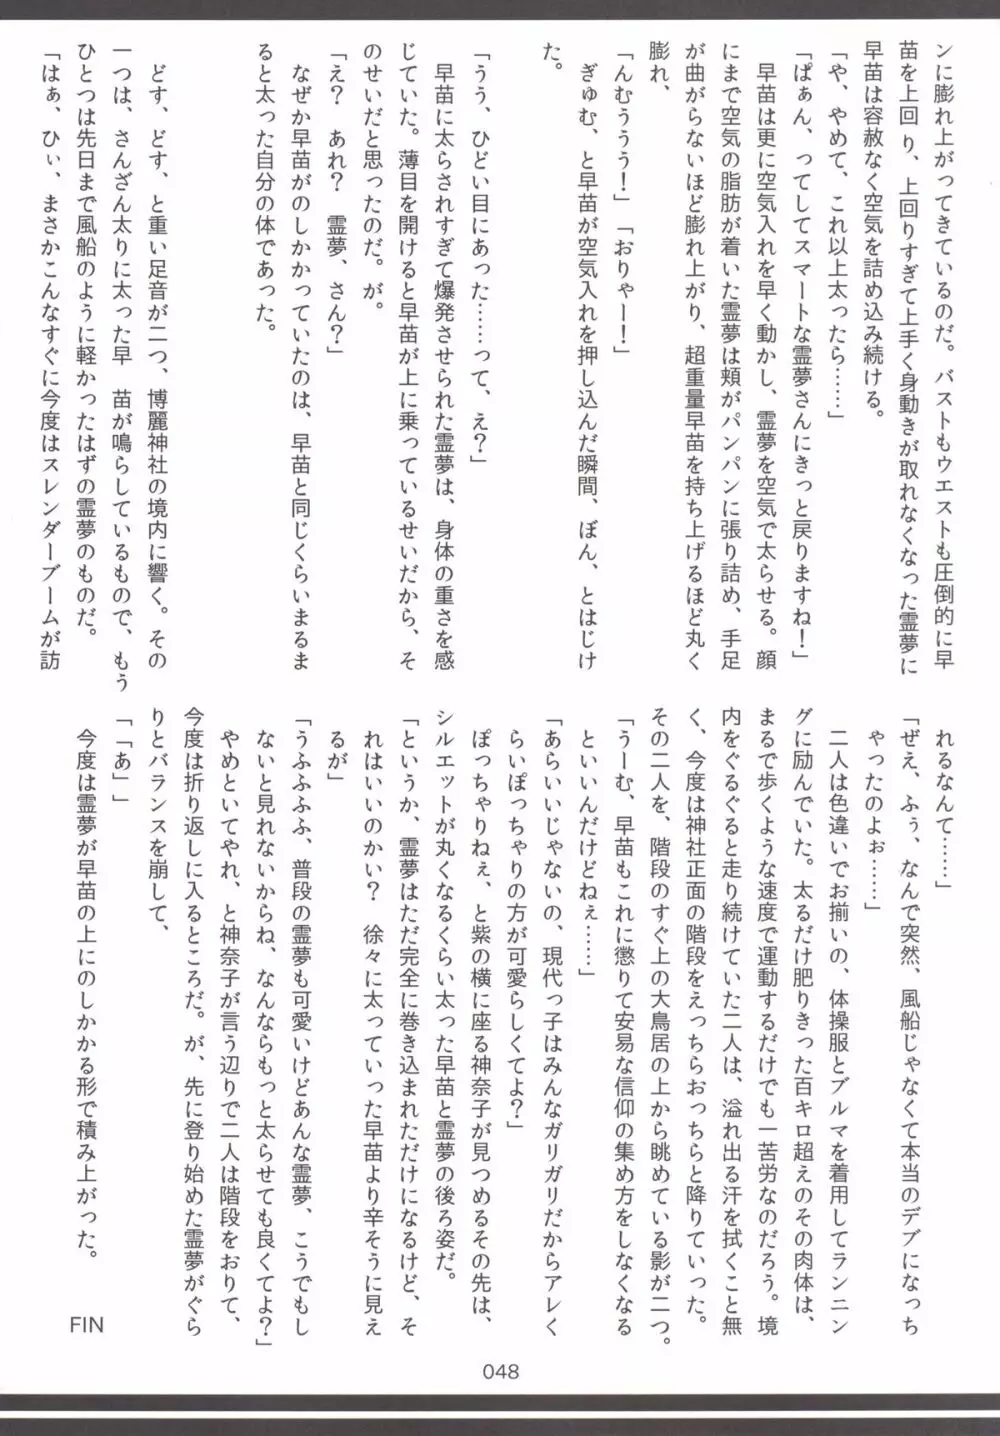 ンに膨れ上がってきているのだ。バストもウエストも圧倒的に早
苗を上回り、上回りすぎて上手く身動きが取れなくなった霊夢に
早苗は容赦なく空気を詰め込み続ける。
「や、やめて、これ以上太ったら……」
「ぱぁん、ってしてスマートな霊夢さんにきっと戻りますね！」
　早苗は更に空気入れを早く動かし、霊夢を空気で太らせる。顔
にまで空気の脂肪が着いた霊夢は頬がパンパンに張り詰め、手足
が曲がらないほど膨れ上がり、超重量早苗を持ち上げるほど丸く
膨れ、
「んむううう！」「おりゃー！」
　ぎゅむ、と早苗が空気入れを押し込んだ瞬間、ぼん、とはじけ
た。
「うう、ひどい目にあった……って、え？」
　早苗に太らされすぎて爆発させられた霊夢は、身体の重さを感
じていた。薄目を開けると早苗が上に乗っているせいだから、そ
のせいだと思ったのだ。が。
「え？　あれ？　霊夢、さん？」
　なぜか早苗がのしかかっていたのは、早苗と同じくらいまるま
ると太った自分の体であった。
　どす、どす、と重い足音が二つ、博麗神社の境内に響く。その
一つは、さんざん太りに太った早　苗が鳴らしているもので、もう
ひとつは先日まで風船のように軽かったはずの霊夢のものだ。
「はぁ、ひぃ、まさかこんなすぐに今度はスレンダーブームが訪
れるなんて……」
「ぜえ、ふぅ、なんで突然、風船じゃなくて本当のデブになっち
ゃったのよぉ……」
　二人は色違いでお揃いの、体操服とブルマを着用してランニン
グに励んでいた。太るだけ肥りきった百キロ超えのその肉体は、
まるで歩くような速度で運動するだけでも一苦労なのだろう。境
内をぐるぐると走り続けていた二人は、溢れ出る汗を拭くこと無
く、今度は神社正面の階段をえっちらおっちらと降りていった。
その二人を、階段のすぐ上の大鳥居の上から眺めている影が二つ。
「うーむ、早苗もこれに懲りて安易な信仰の集め方をしなくなる
といいんだけどねぇ……」
「あらいいじゃないの、現代っ子はみんなガリガリだからアレく
らいぽっちゃりの方が可愛らしくてよ？」
　ぽっちゃりねぇ、と紫の横に座る神奈子が見つめるその先は、
シルエットが丸くなるくらい太った早苗と霊夢の後ろ姿だ。
「というか、霊夢はただ完全に巻き込まれただけになるけど、そ
れはいいのかい？　徐々に太っていった早苗より辛そうに見え
るが」
「うふふふふ、普段の霊夢も可愛いけどあんな霊夢、こうでもし
ないと見れないからね、なんならもっと太らせても良くてよ？」
　やめといてやれ、と神奈子が言う辺りで二人は階段をおりて、
今度は折り返しに入るところだ。が、先に登り始めた霊夢がぐら
りとバランスを崩して、
「「あ」」
　今度は霊夢が早苗の上にのしかかる形で積み上がった。
FIN
048